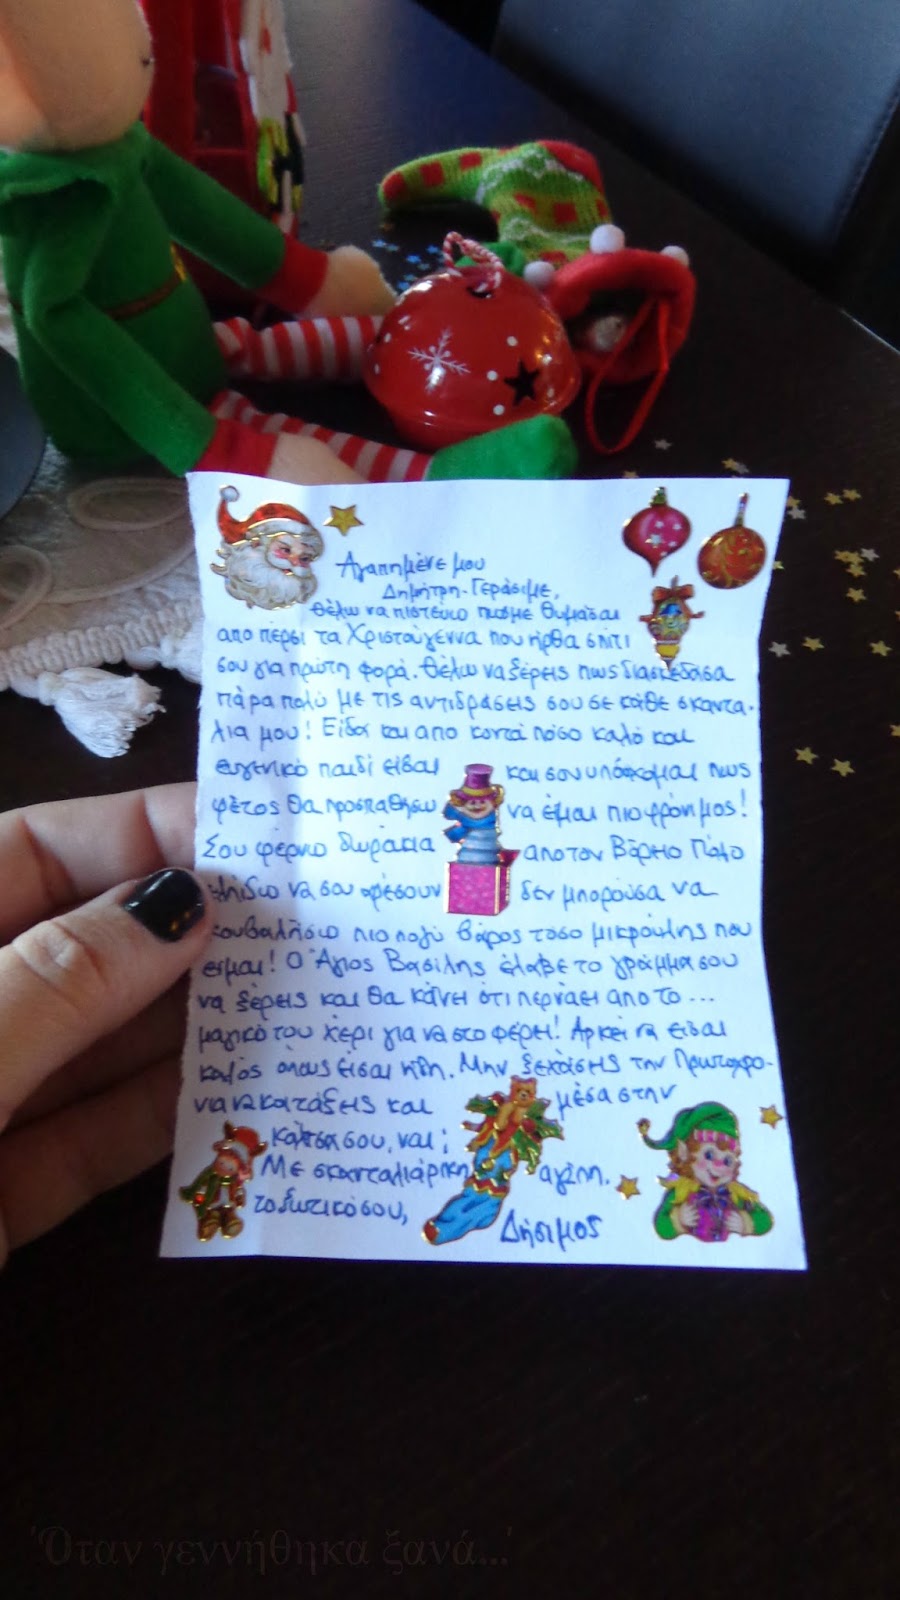 Αγαπημένε μου
Δημήτρη-Γεράσιμε,
θέλω να πιστεύω πως με θυμάσαι
απο πέρσι τα Χριστούγεννα που ήρθα σπίτι
σου για πρώτη φορά. Θέλω να ξέρεις πως διασκέδασα
πάρα πολύ με τις αντιδράσεις σου σε κάθε σκαντα-
λια μου! Είδα και απο κοντά πόσο καλό και
ευγενικό παιδί είσαι και σου υπόσχομαι πως
φέτος θα προσπαθήσω να είμαι πιο φρόνιμος!
Σου φέρνω δωράκια απο τον Βόρειο Πόλο
ελπίζω να σου αρέσουν δεν μπορούσα να
κουβαλήσω πιο πολύ βάρος τόσο μικρούλης που
ειμαι! Ο Άγιος Βασίλης έλαβε το γράμμα σου
να ξέρεις και θα κάνει ότι περνάει απο το...
μαγικό του χέρι για να στο φέρει! Αρκεί να εισαι
καλός όπως είσαι ήδη. Μην ξεχάσεις την Πρωτοχρο-
νια να κοιτάξεις και μέσα στην
κάλτσα σου, ναι;
Με σκανταλιάρικη αγάπη,
το ξωτικό σου, Δήσιμος
'Όταν γεννήθηκα ξανά...'